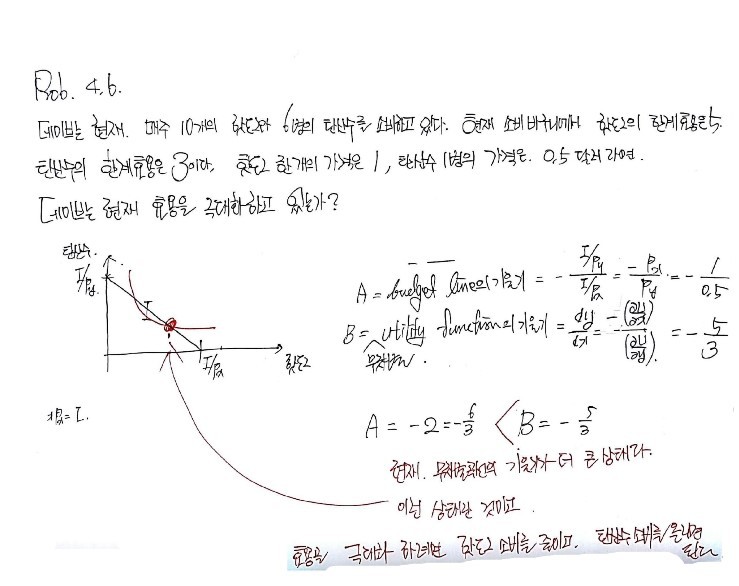 Prob. 4.6.
데이브는 현재. 매주 10개의 핫도그와 6병의 탄산수를 소비하고 있다. 현재 소비바구니에서 핫도그의 한계효용은 5.
탄산수의 한계효용은 3이다. 핫도그 한개의 가격은 1, 탄산수 1병의 가격은. 0.5 달러라면.
데이브는 현재 효용을 극대화하고 있는가?
탄산수.
I/Py
I/Px
핫도그
A = budget line의 기울기 = - (I/Py)/(I/Px) = -Px/Py = - 1/0.5
B = utility function의 기울기 = dy/dx = -(∂U/∂x)/(∂U/∂y). = - 5/3
무차별곡선.
= I.
A = -2 = -6/3 < B = - 5/3
현재. 무차별곡선의 기울기가 더 큰 상태다.
이런 상태란 것이고.
효용을 극대화 하려면 핫도그 소비를 줄이고. 탄산수 소비를 올리면 된다.